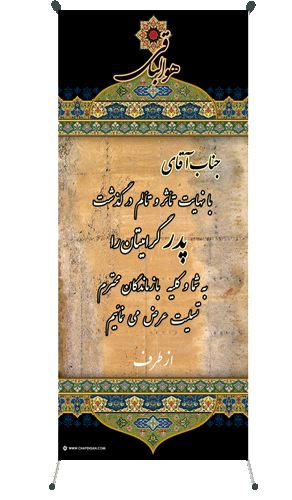 هو الباقی
جناب آقای
با نهایت تأثر و تألم درگذشت
پدر گرامیتان را
به شما و کلیه بازماندگان محترم
تسلیت عرض می نمائیم
از طرف
WWW.CHAPIRSAN.COM